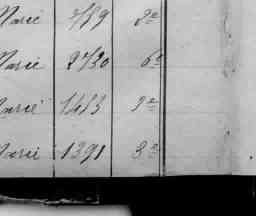 Marié 2/39 2e
Marié 2730 6e
Marié 1413 3e
Marié 1391 8e